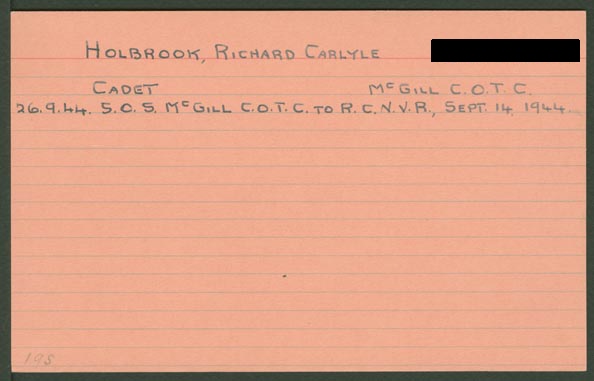 HOLBROOK, RICHARD CARLYLE
CADET McGILL C.O.T.C.
26.9.44. S.O.S. McGILL C.O.T.C. TO R.C.N.V.R., SEPT. 14, 1944.
195